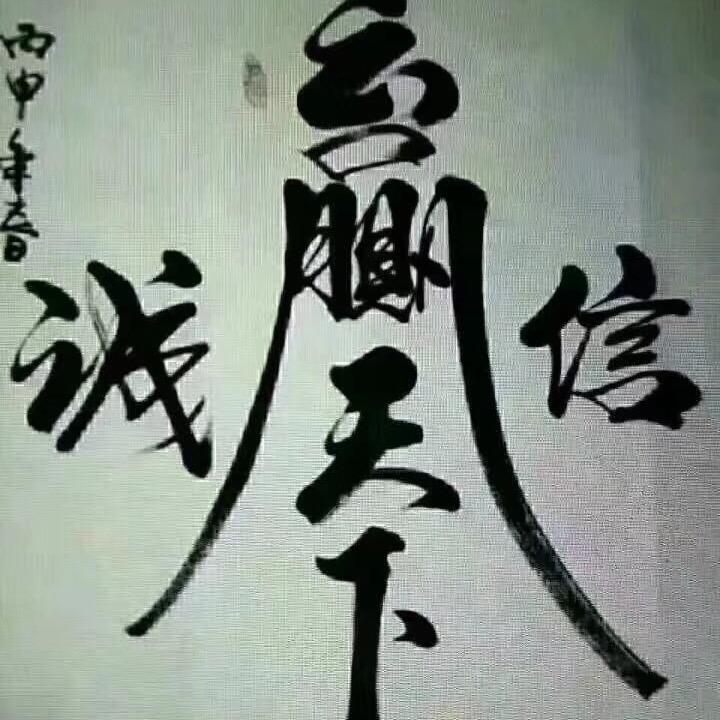 诚信
赢天下
丙申年春